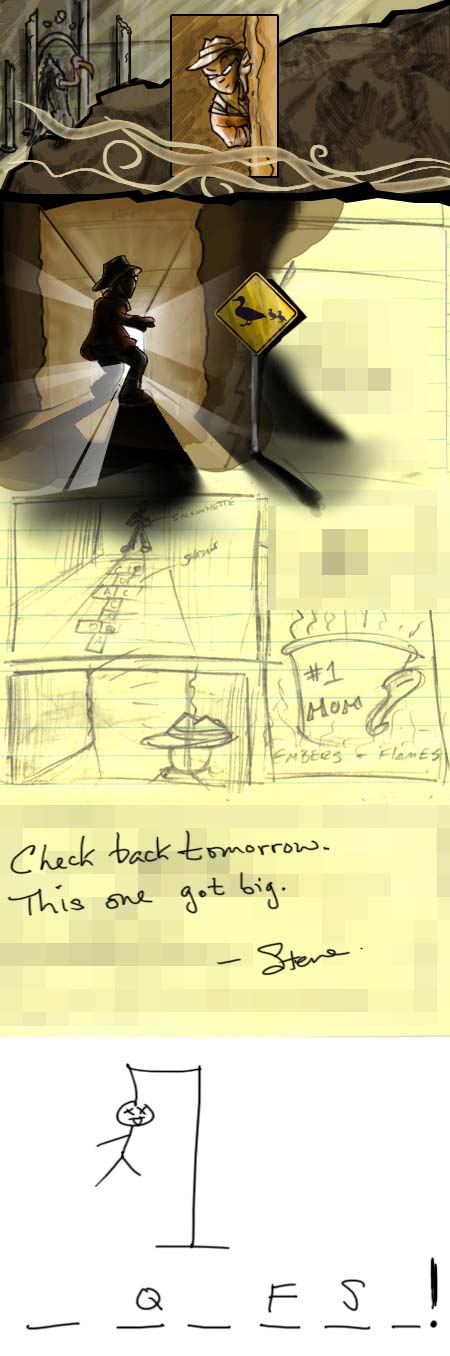 SILHOUETTE
SHADOW
#1
MOM
EMBERS + FLAMES
Check back tomorrow.
This one got big.
— Steve
_ Q _ F S _ !